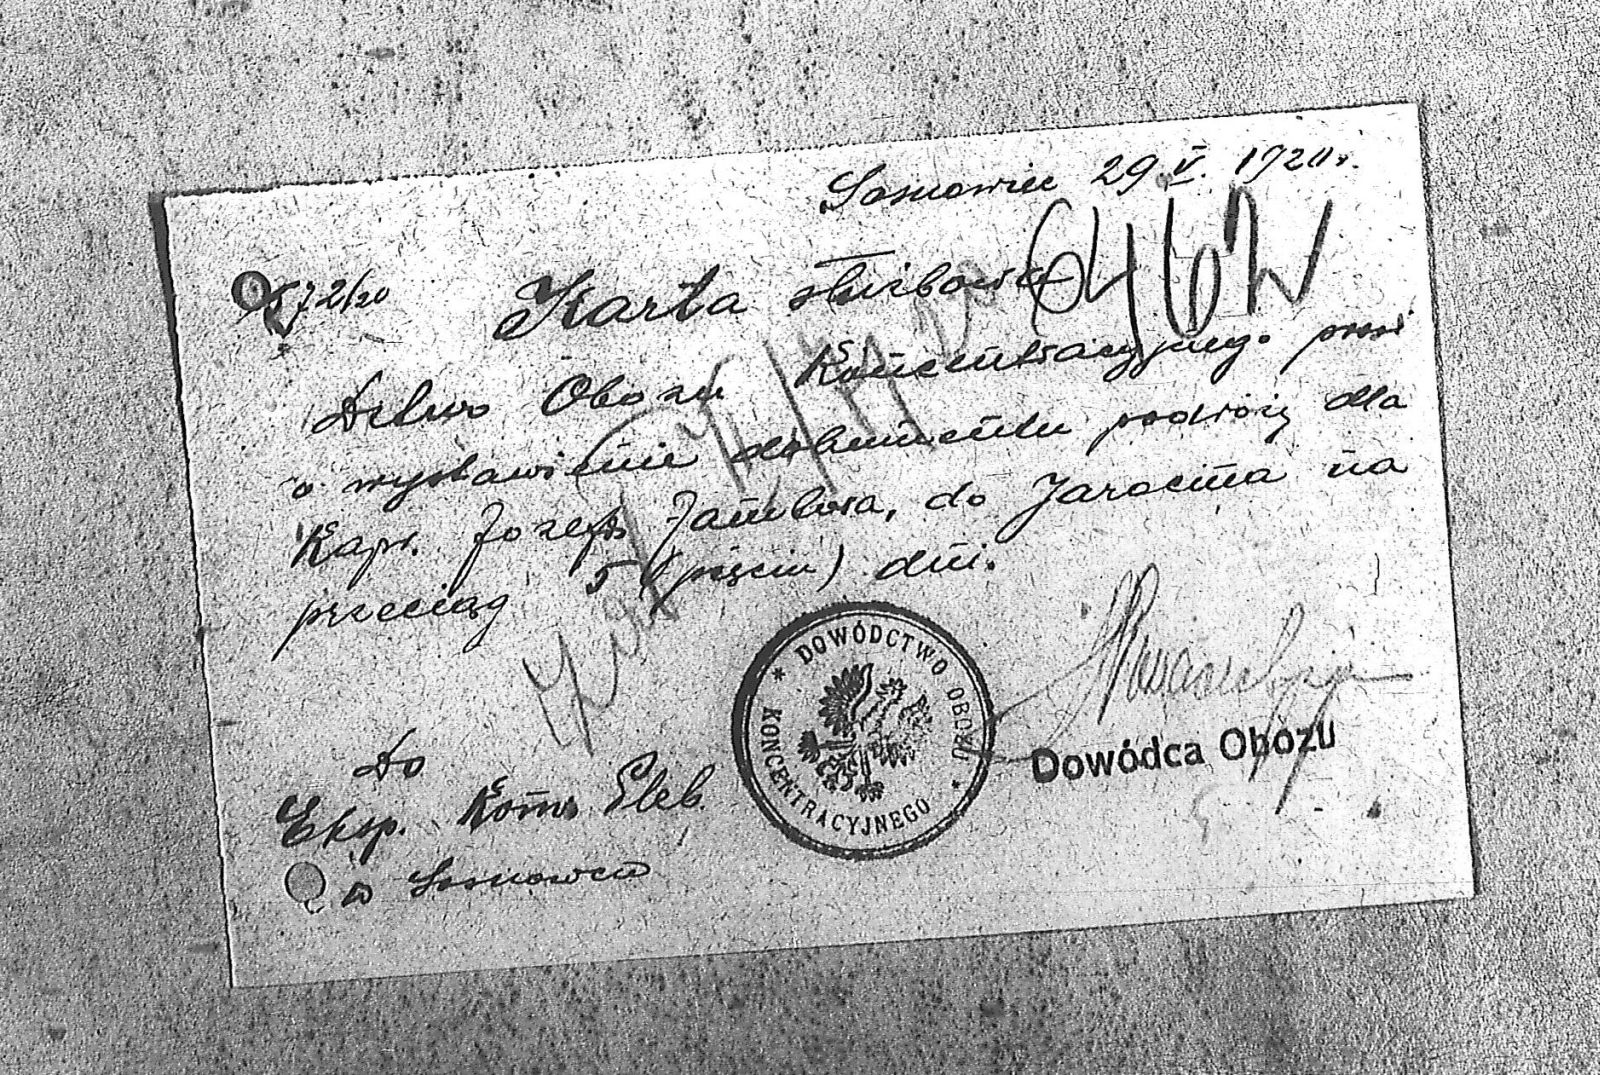 Sosnowiec 29 V. 1920 r.
572/20
Karta służbowa
6462
Dctwo Obozu Koncentracyjnego prosi
o wystawienie dokumentu podróży dla
Kapr. Józefa do Jarocina na
przeciąg 5 (pięciu) dni.
DOWÓDCTWO OBOZU KONCENTRACYJNEGO
Dowódca Obozu
Do
Eksp. Komp. Etap.
w Sosnowcu